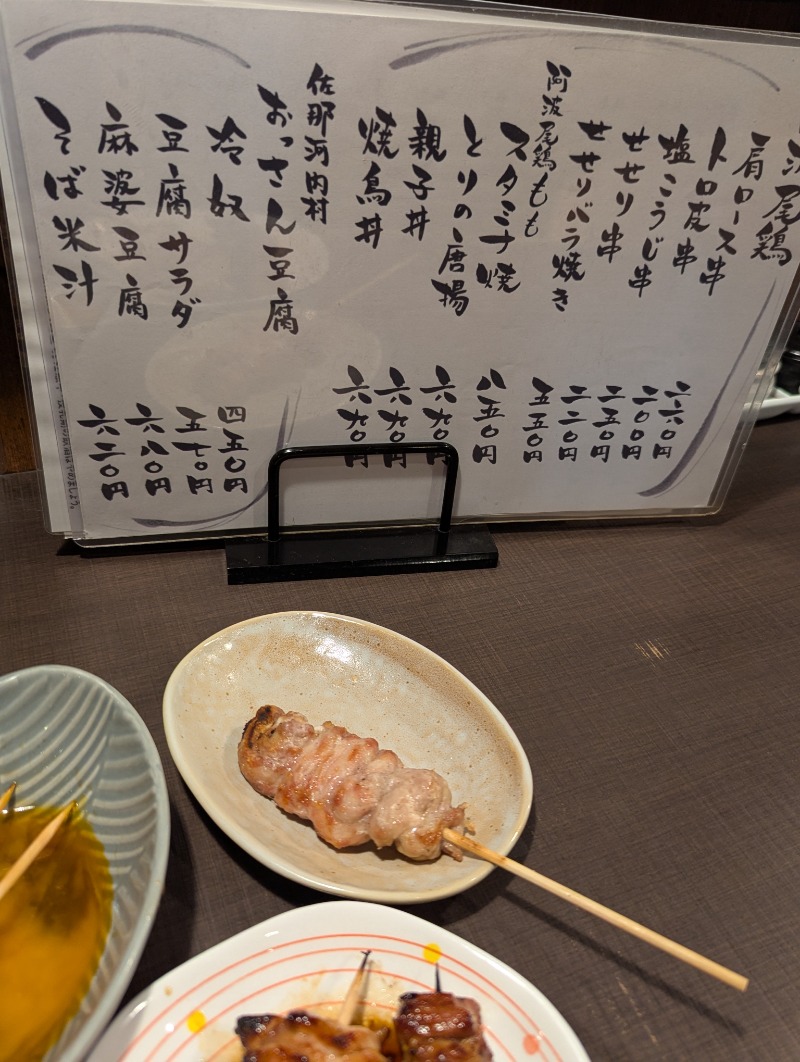 波尾鶏
肩ロース串
トロ皮串
塩こうじ串
せせり串
せせりバラ焼き
阿波尾鶏もも
スタミナ焼
とりの唐揚
親子丼
焼鳥丼
佐那河内村
おっさん豆腐
冷奴
豆腐サラダ
麻婆豆腐
そば米汁
二六〇円
二〇〇円
二五〇円
二二〇円
五五〇円
八五〇円
六九〇円
六九〇円
六九〇円
四五〇円
五七〇円
六八〇円
六二〇円